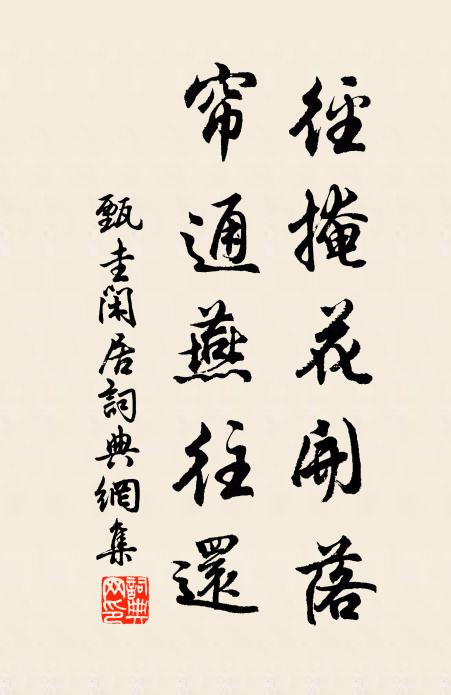 徑掩花開落
帘通燕往還
甄圭閑居詞典網集
詞典
網印